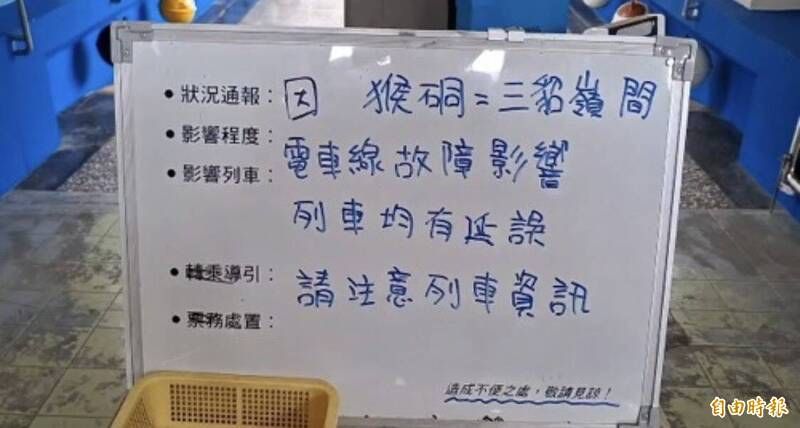 狀況通報：因 猴硐=三貂嶺間
影響程度：
電車線故障影響
影響列車：
列車均有延誤
轉乘導引：
請注意列車資訊
票務處置：
造成不便之處，敬請見諒！
自由時報